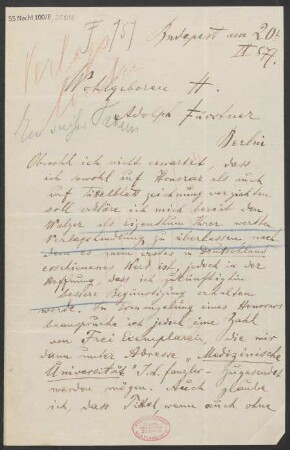 55 Nachl 100/B,
F 151
Budapest am 20.
IV 87.
Verlags
Wohlgeboren H.
Adolph Fürstner
Berlin
Obwohl ich nicht erwartet, dass
ich sowohl auf Honorar als auch
auf Titelblatt zeichnung verzichten
soll erkläre ich mich bereit den
Walzer als eigenthum Ihrer werthen
Verlagshandlung zu überlassen, nach
dem es mein erstes in Deutschland
erschienenes Werk ist, jedoch in der
Hoffnung, dass ich zukünftighin
bessere Begünstigung erhalten
werde. In Ermangelung eines Honorars
beanspruche ich jedoch eine Zahl
von Frei Exemplaren, die mir
dann unter Adresse "Medizinische
Universität" zugesendet
werden mögen. Auch glaube
ich, dass Tittel, wenn auch ohne